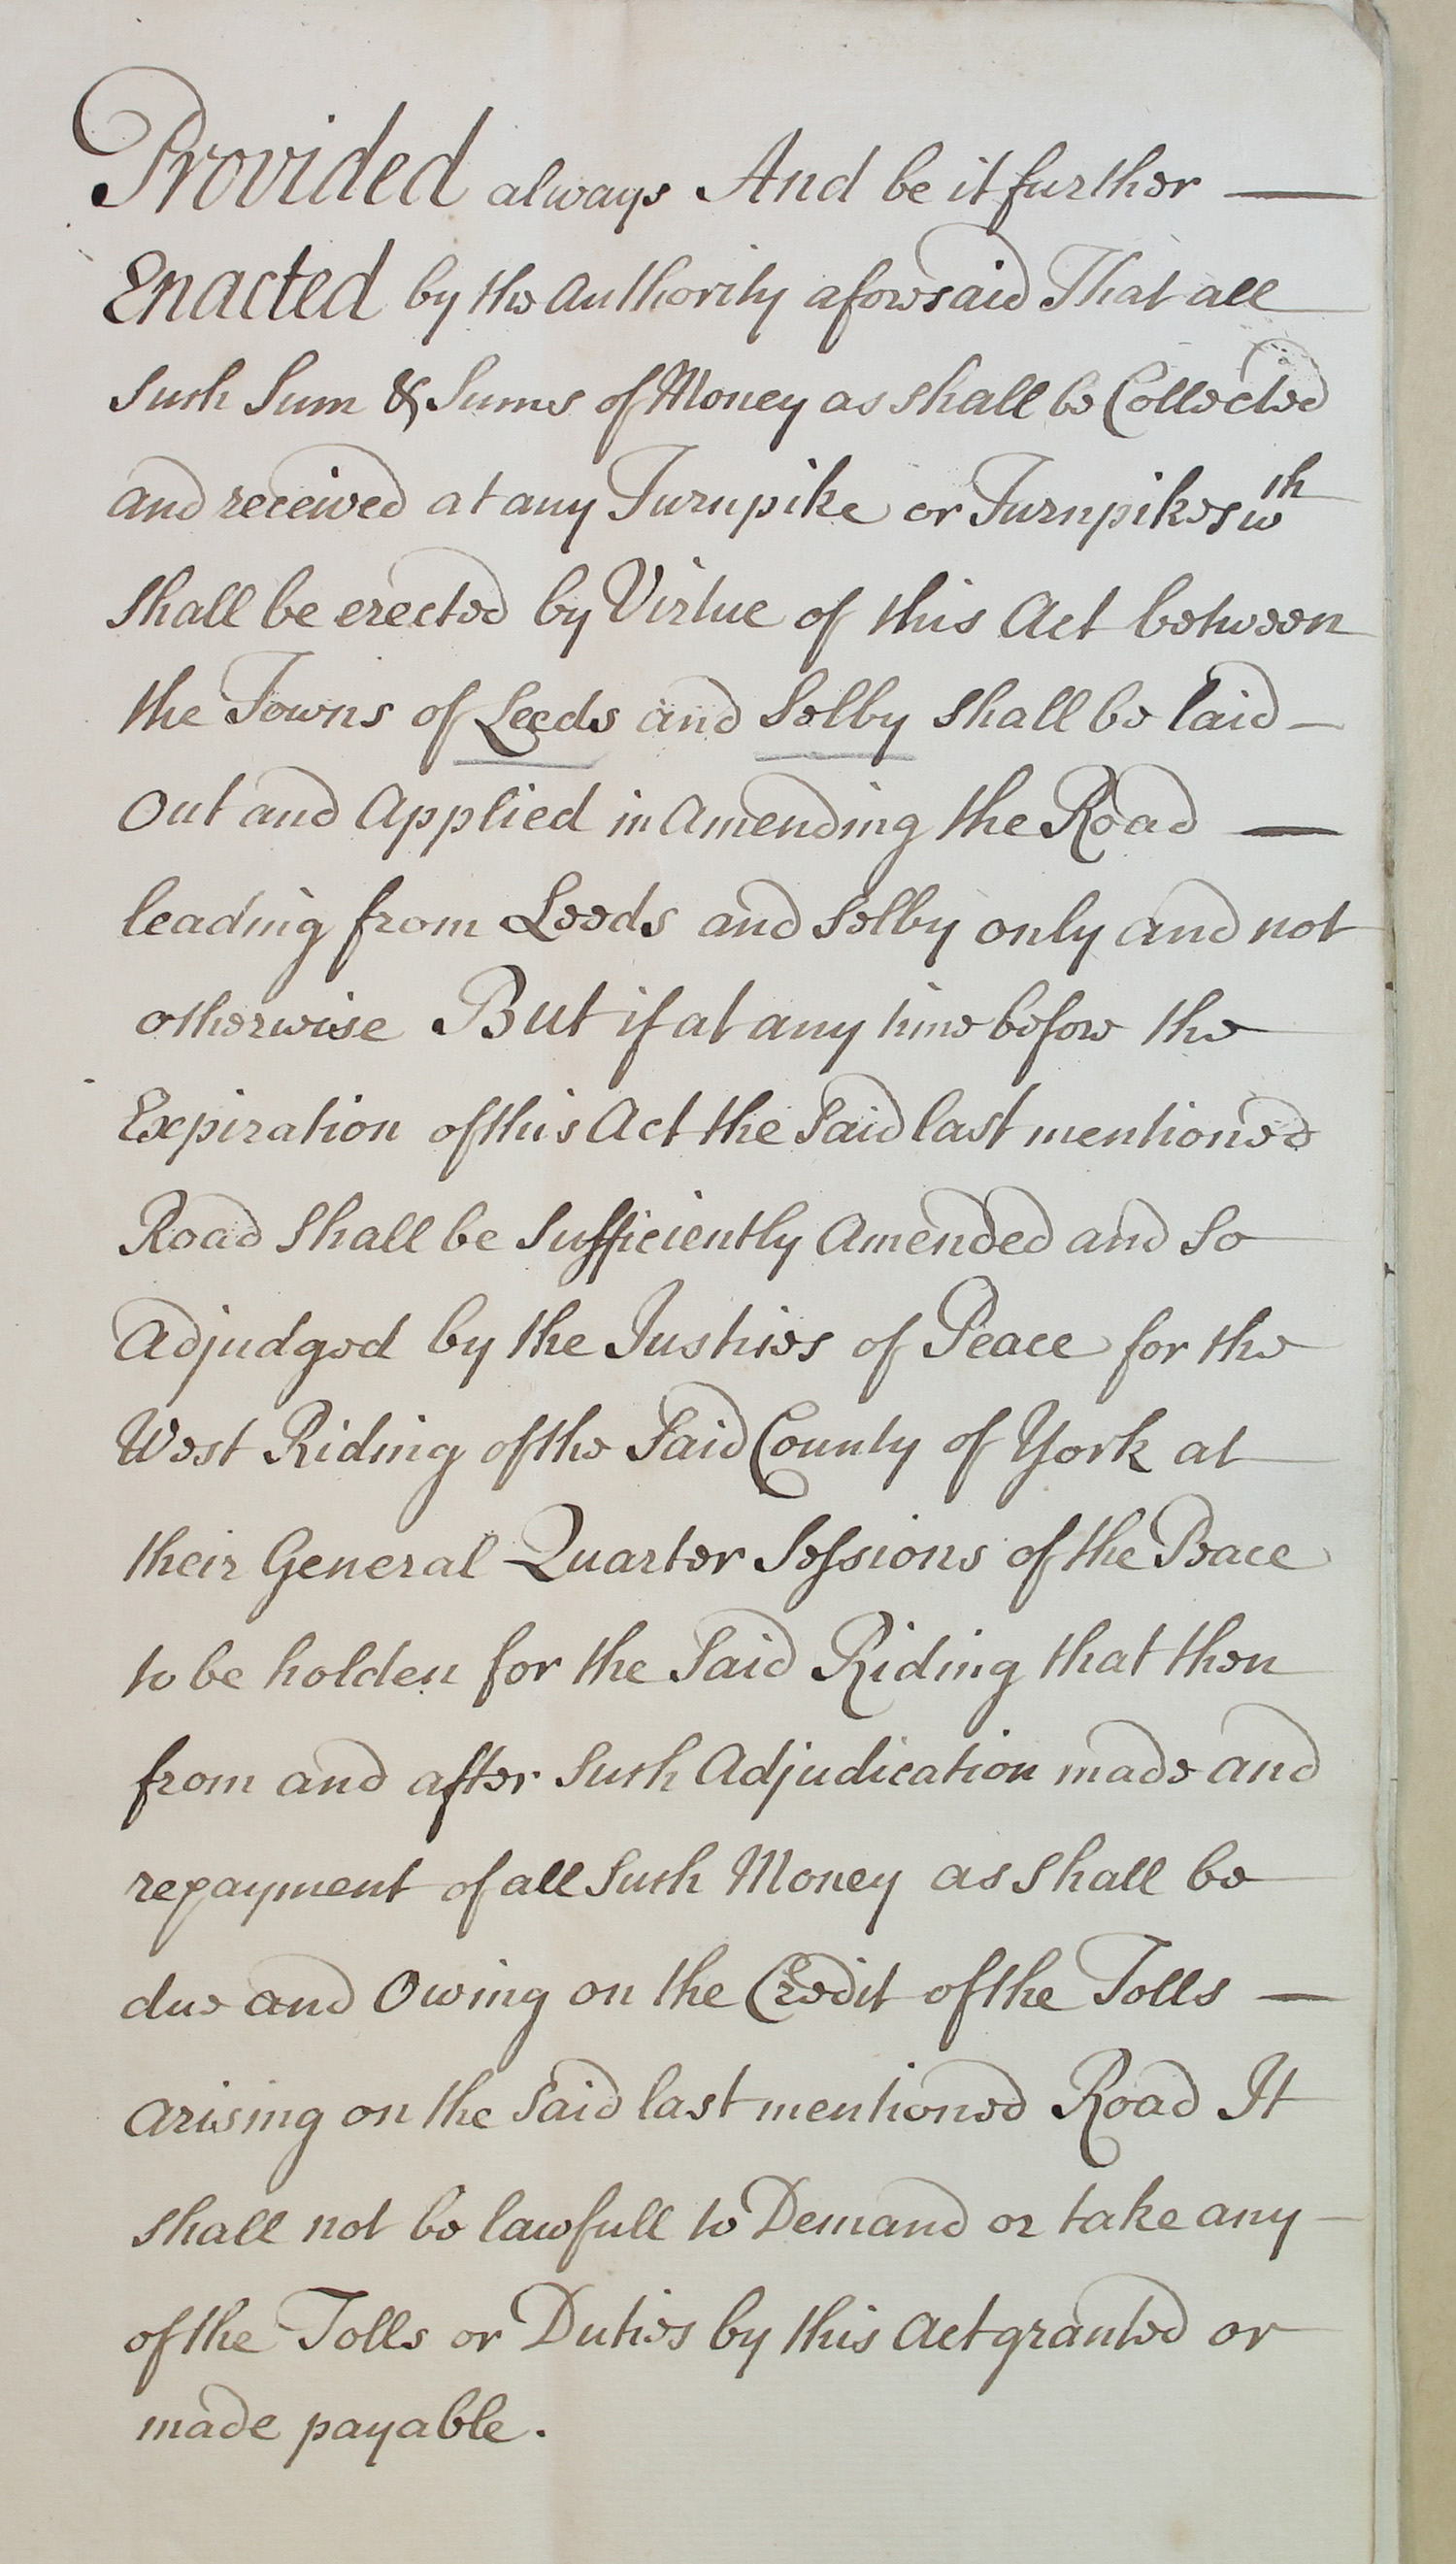 Provided always And be it further —
Enacted by the Authority aforesaid That all
Such Sum & Sums of Money as shall be Collected
and received at any Turnpike or Turnpikes wch
shall be erected by Virtue of this Act between
the Towns of Leeds and Selby shall be laid —
Out and Applied in Amending the Road —
leading from Leeds and Selby only and not
otherwise But if at any time before the
Expiration of this Act the Said last mentioned
Road shall be Sufficiently Amended and So
Adjudged by the Justices of Peace for the
West Riding of the Said County of York at
their General Quarter Sessions of the Peace
to be holden for the Said Riding that then
from and after Such Adjudication made and
repayment of all Such Money as shall be
due and Owing on the Credit of the Tolls —
arising on the Said last mentioned Road It
shall not be lawfull to Demand or take any —
of the Tolls or Duties by this Act granted or
made payable.